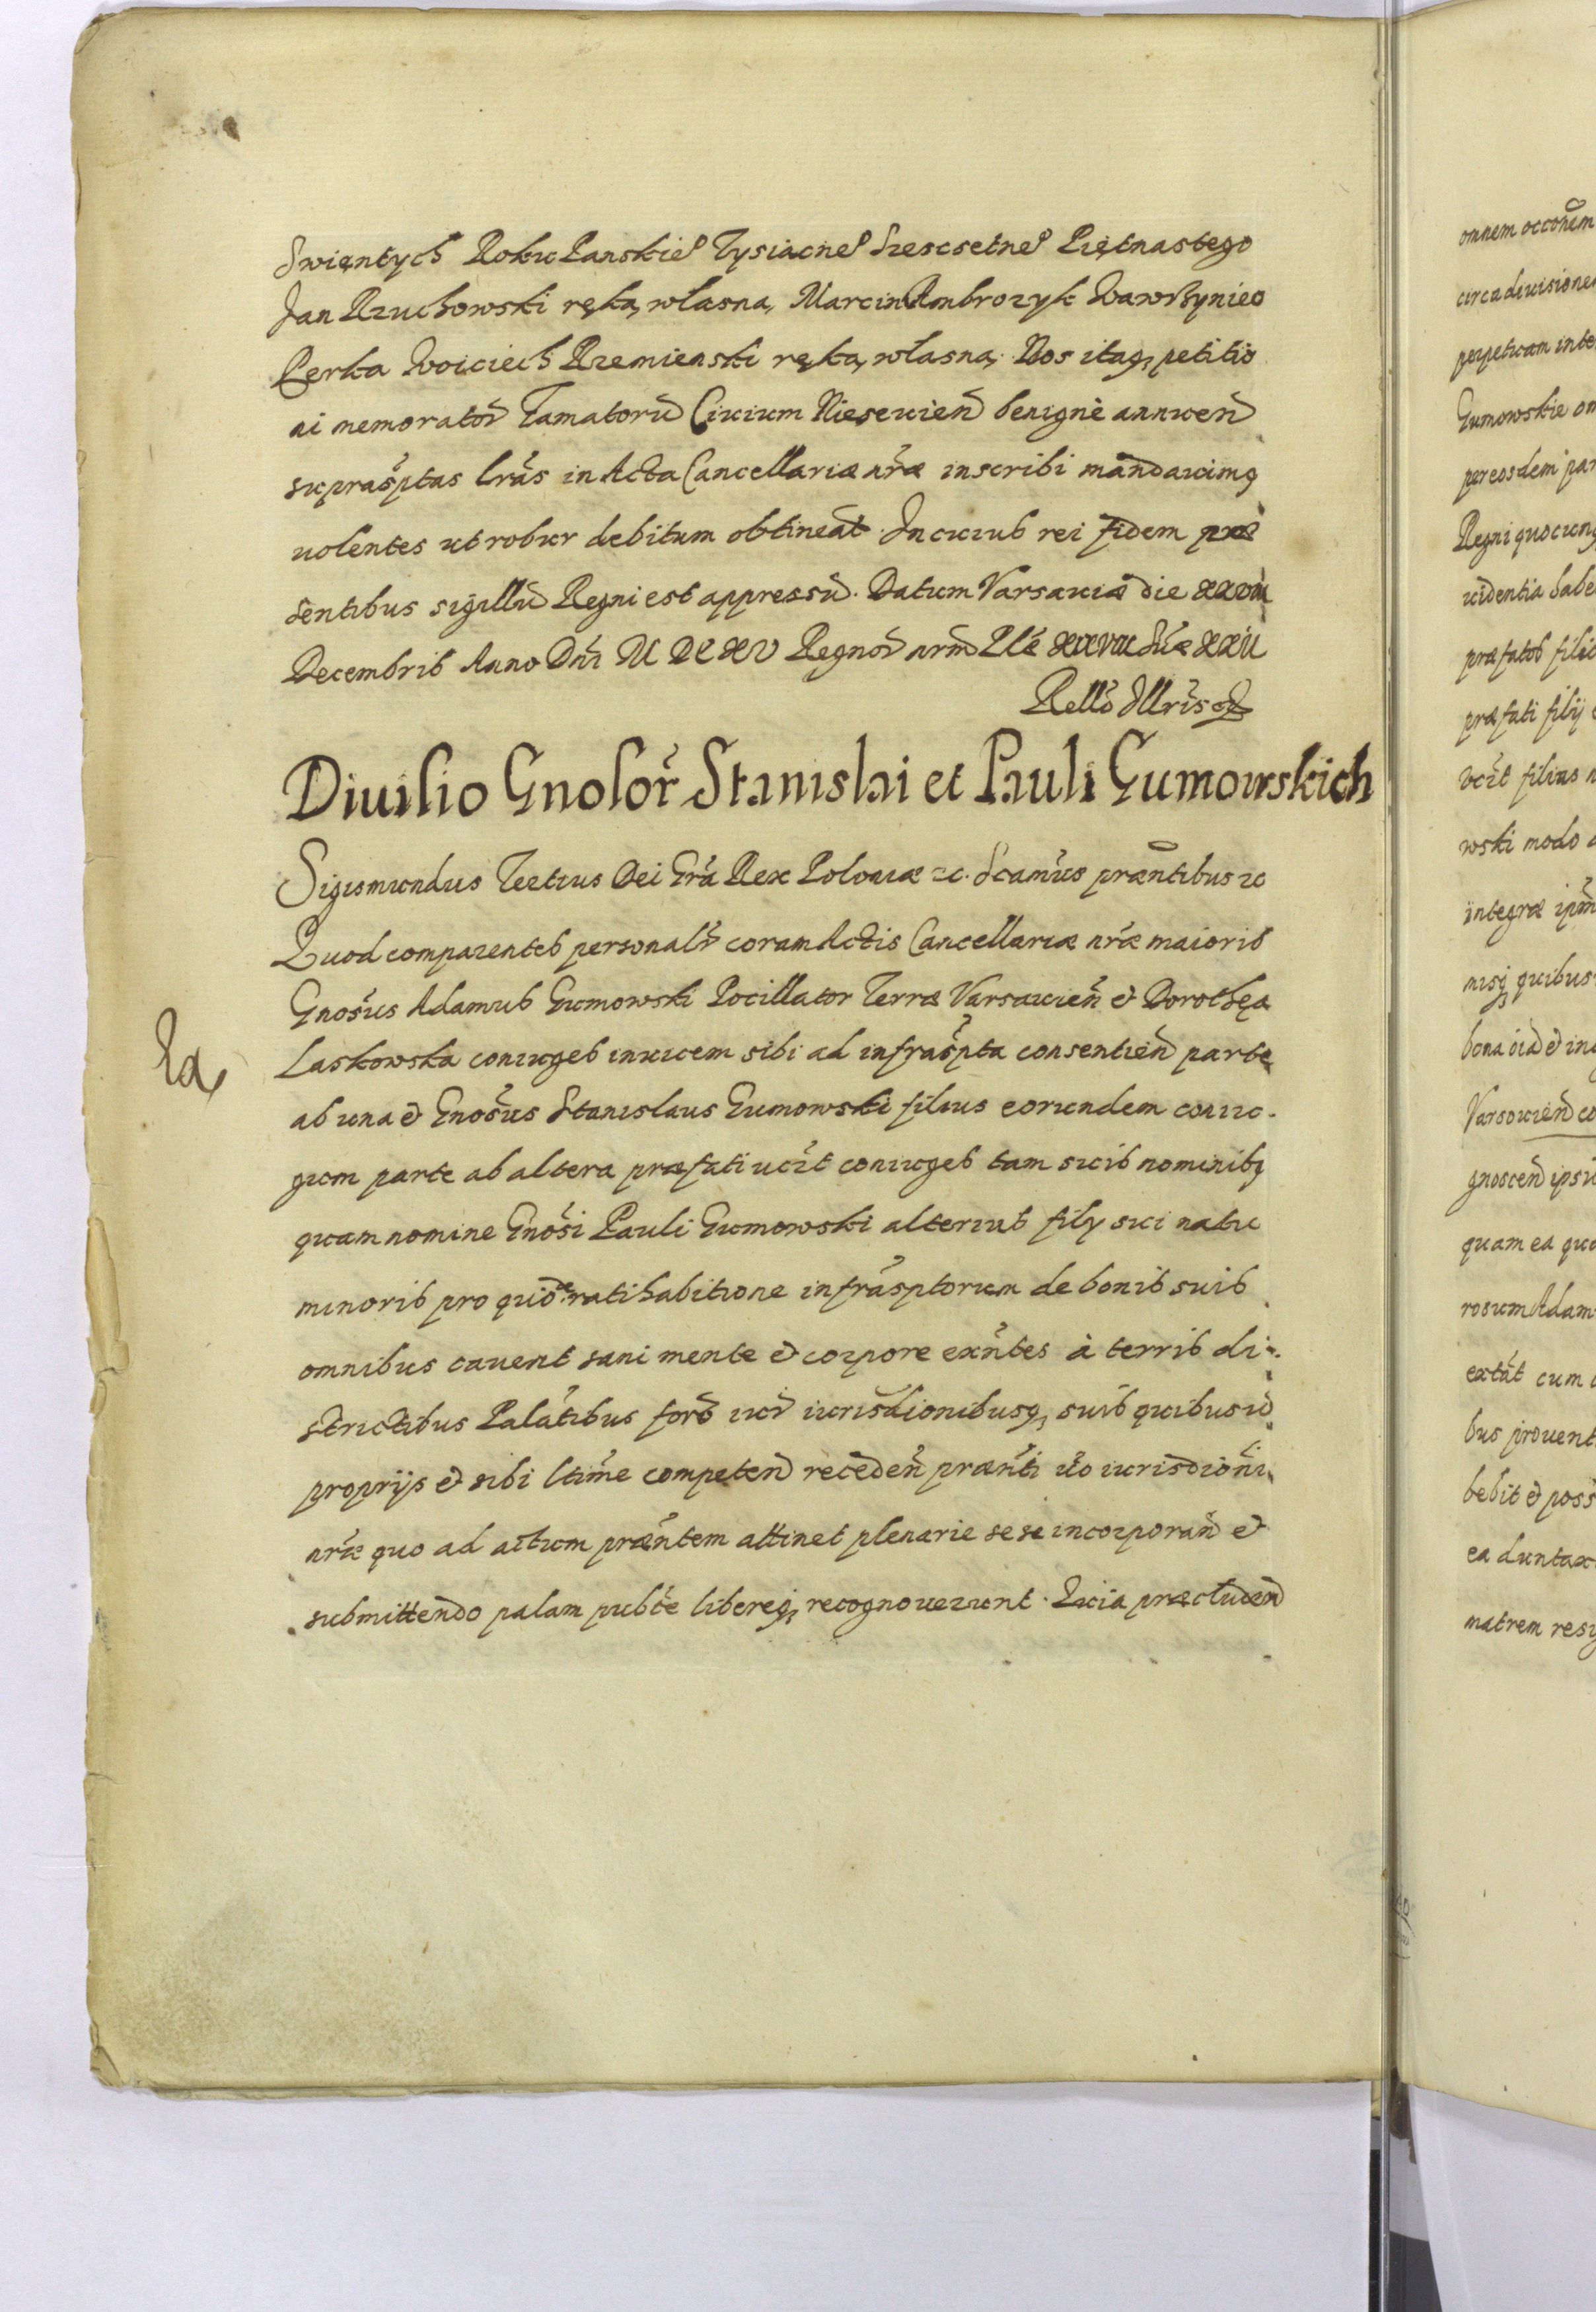 Swiętych Roku Panskie⁰ Tysiącne⁰ Szescsetne⁰ Piętnastego
Jan Rzuchowski ręką własną, Marcin Ambrozyk Wawrzyniec
Perka Woiciech Rzemienski ręką własną. Nos itaq petitio
ni memorator̄ Famatorū Ciuium Nieseuien̄ benignè annuen̄
suprasc̃ptas lr̃as in Acta Cancellariæ nr̃æ inscribi mandauimq
uolentes ut robur debitum obtineat. In cuius rei fidem præ
sentibus sigillū Regni est appressū. Datum Varsauiæ die xxviii
Decembris Anno Dn̄i MDCXV Regnor̄ nr̄orū Pl̃æ xxviii Sũæ xxii
Rell̃o Ill̃ris
Diuisio Gnosor̃ Stanislai et Pauli Gumowskich
Sigismundus Tertius Dei Gr̃a Rex Poloniæ ꝛc. Scam̃us præn̄tibus ꝛc
Quod comparentes personalr̃ coram Actis Cancellariæ nr̃æ maioris
Gnos̃us Adamus Gumowski Pocillator Terræ Varsauien̄ et Dorothęa
Laskowska coniuges inuicem sibi ad infrasc̃pta consentien̄ parte
ab una et Gnos̃us Stanislaus Gumowski filius eorundem coniu-
gum parte ab altera præfati uc̃zt coniuges tam suis nominibq
quam nomine Gnos̃i Pauli Gumowski alterius filij sui natu
minoris pro quõ de ratihabitione infrasc̃ptorum de bonis suis
omnibus cauent sani mente et corpore exñtes à terris di-
strictibus Palãtibus foris iur̄ iurisd̄ionibusq suis quibusuis
proprijs et sibi ltim̃e competen̄ receden̄ præn̄ti uõ iurisdion̄i
nr̃æ quo ad actum præn̄tem attinet plenarie sese incorporan̄ et
submittendo palam pubc̃e libereq recognouerunt. Quia præcluden̄
omnem occõnem
circa diuisione
perpetuam inte
Gumowskie om
per eosdem par
Regni quocunq
uidentia habe
præfatos filio
præfati filij
uc̃zt filius n
wski modo
integræ ipm̃
nisq quibus
bona oiã et in
Varsouien̄ co
gnoscen̄ ipsũ
quam ea quo
rosum Adam
extãt cum
bus prouent
bebit et poss
ea duntax
matrem resi